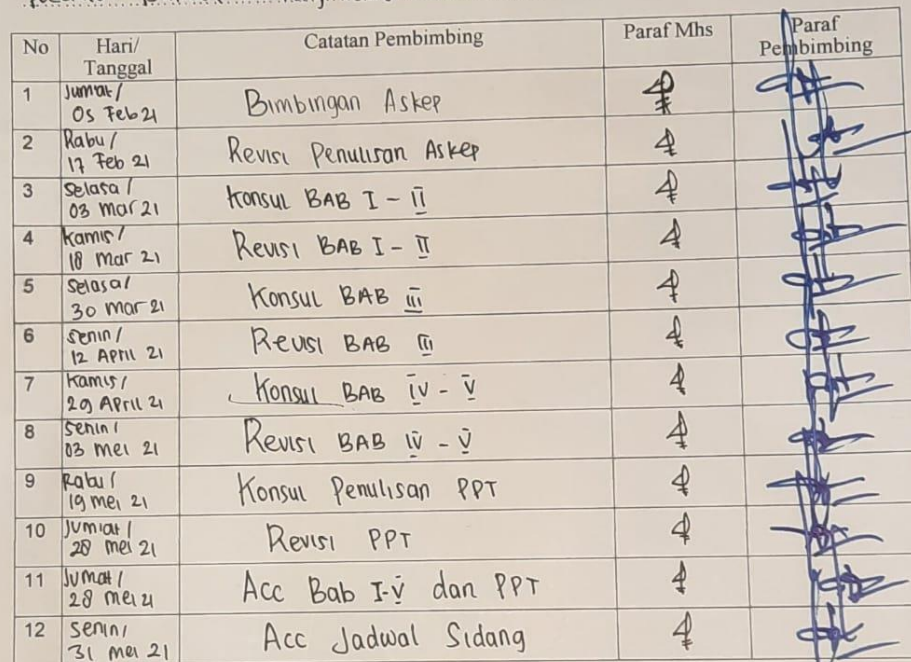 No Hari/ Tanggal Catatan Pembimbing Paraf Mhs Paraf Pembimbing
1 Jumat/ 05 Feb 21 Bimbingan Askep
2 Rabu/ 17 Feb 21 Revisi Penulisan Askep
3 Selasa/ 03 Mar 21 Konsul BAB I - II
4 Kamis/ 18 Mar 21 Revisi BAB I - II
5 Selasa/ 30 Mar 21 Konsul BAB III
6 Senin/ 12 April 21 Revisi BAB III
7 Kamis/ 29 April 21 Konsul BAB IV - V
8 Senin/ 03 Mei 21 Revisi BAB IV - V
9 Rabu/ 19 Mei 21 Konsul Penulisan PPT
10 Jumat/ 28 Mei 21 Revisi PPT
11 Jumat/ 28 Mei 21 Acc Bab I-V dan PPT
12 Senin/ 31 Mei 21 Acc Jadwal Sidang